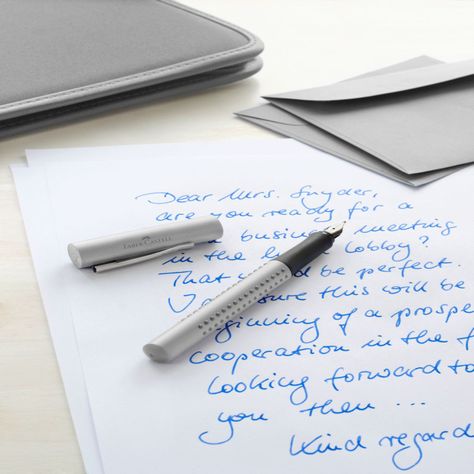 Dear Mrs. Snyder,
are you ready for a
business meeting
in the lobby?
That would be perfect.
sure this will be
beginning of a prospe
cooperation in the f
looking forward to
you then ...
Kind regard
FABER-CASTELL